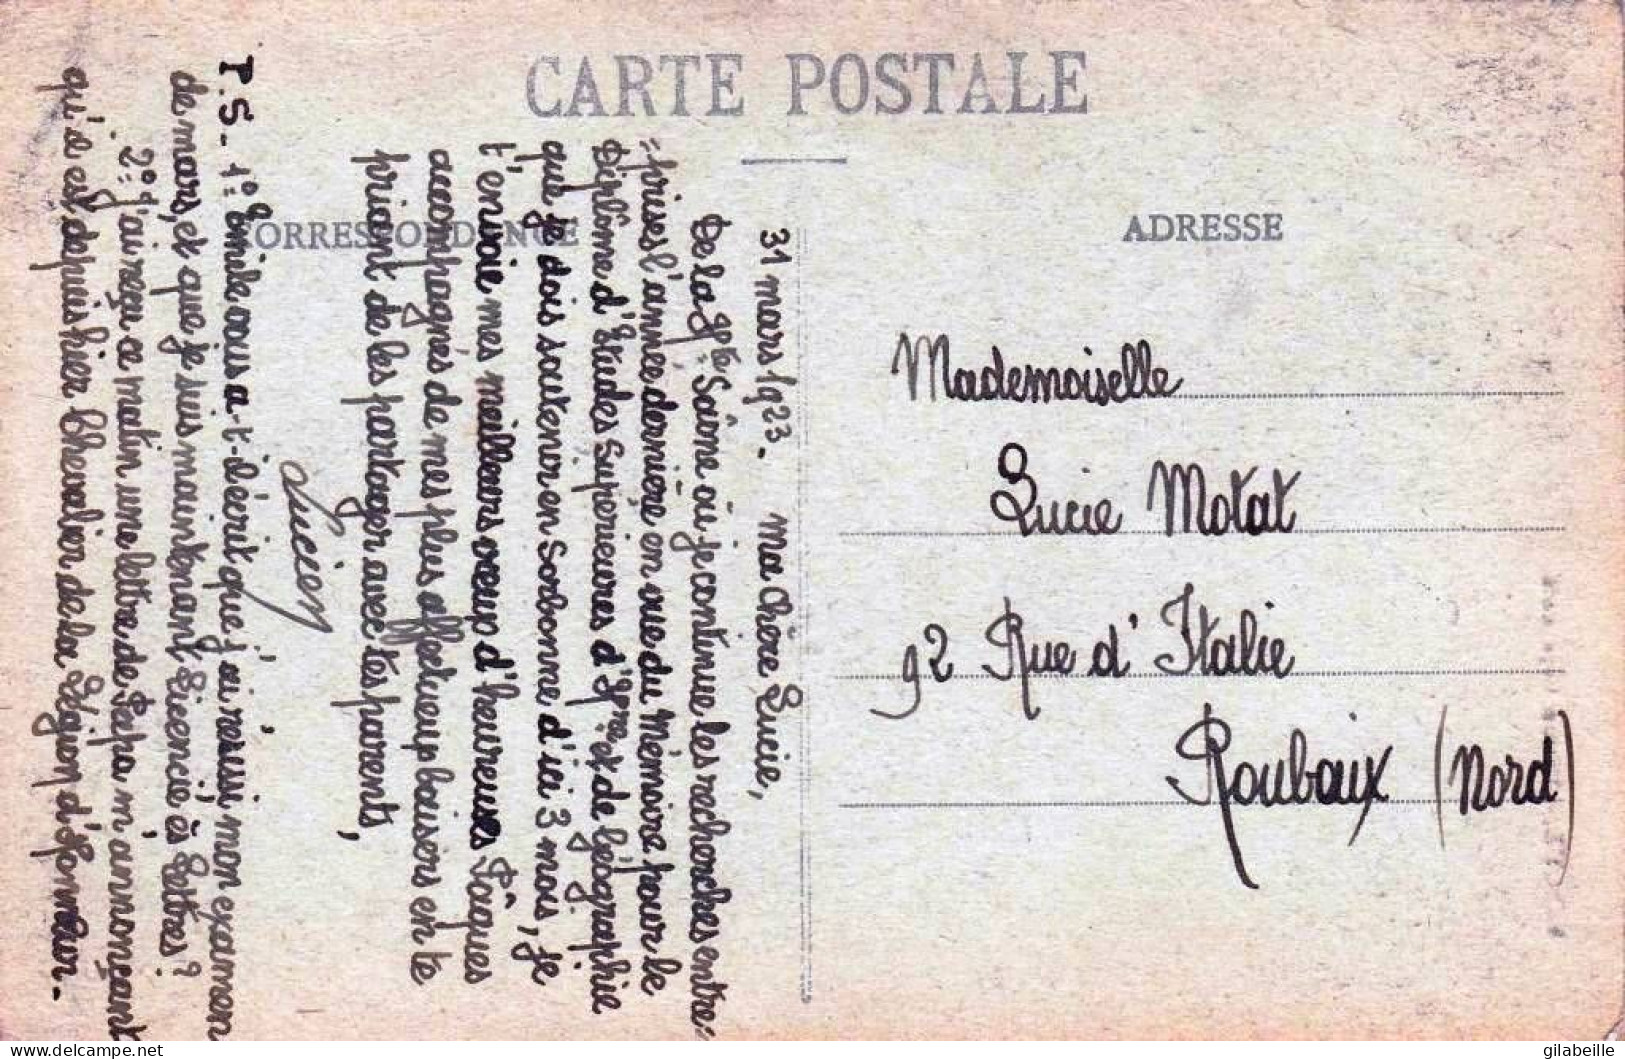 CARTE POSTALE
CORRESPONDANCE
ADRESSE
31 mars 1923. Ma chère Lucie,
De la Hte Saône où je continue les recherches entre=
=prises l'année dernière en vue du Mémoire pour le
Diplôme d'Etudes Supérieures d'Hre et de Géographie
que je dois soutenir en Sorbonne d'ici 3 mois, je
t'envoie mes meilleurs vœux d'heureuses Pâques
accompagnés de mes plus affectueux baisers en te
priant de les partager avec tes parents,
Lucien
P.S- 1° Emile vous a-t-il écrit que j'ai réussi mon examen
de mars, et que je suis maintenant Licencié ès Lettres?
2° = J'ai reçu ce matin une lettre de Papa m'annonçant
qu'il est depuis hier Chevalier de la Légion d'Honneur.-
Mademoiselle
Lucie Motat
92 Rue d'Italie
Roubaix (Nord)
gilabeille